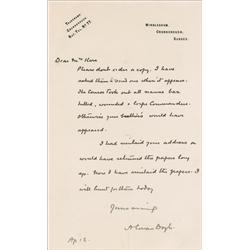 TELEGRAMS
CROWBOROUGH
TEL. NO. 77
WINDLESHAM,
CROWBOROUGH,
SUSSEX.
Dear Mr
Please don't order a copy. I have
asked them to send one when it appears.
The Censor took out all names bar
killed, wounded & Corps Commanders.
Otherwise your brother's would have
appeared.
I had mislaid your address or
would have returned the papers long
ago. Now I have mislaid the papers. I
will hunt for them today
Yours sincerely
A Conan Doyle
Ap 12.